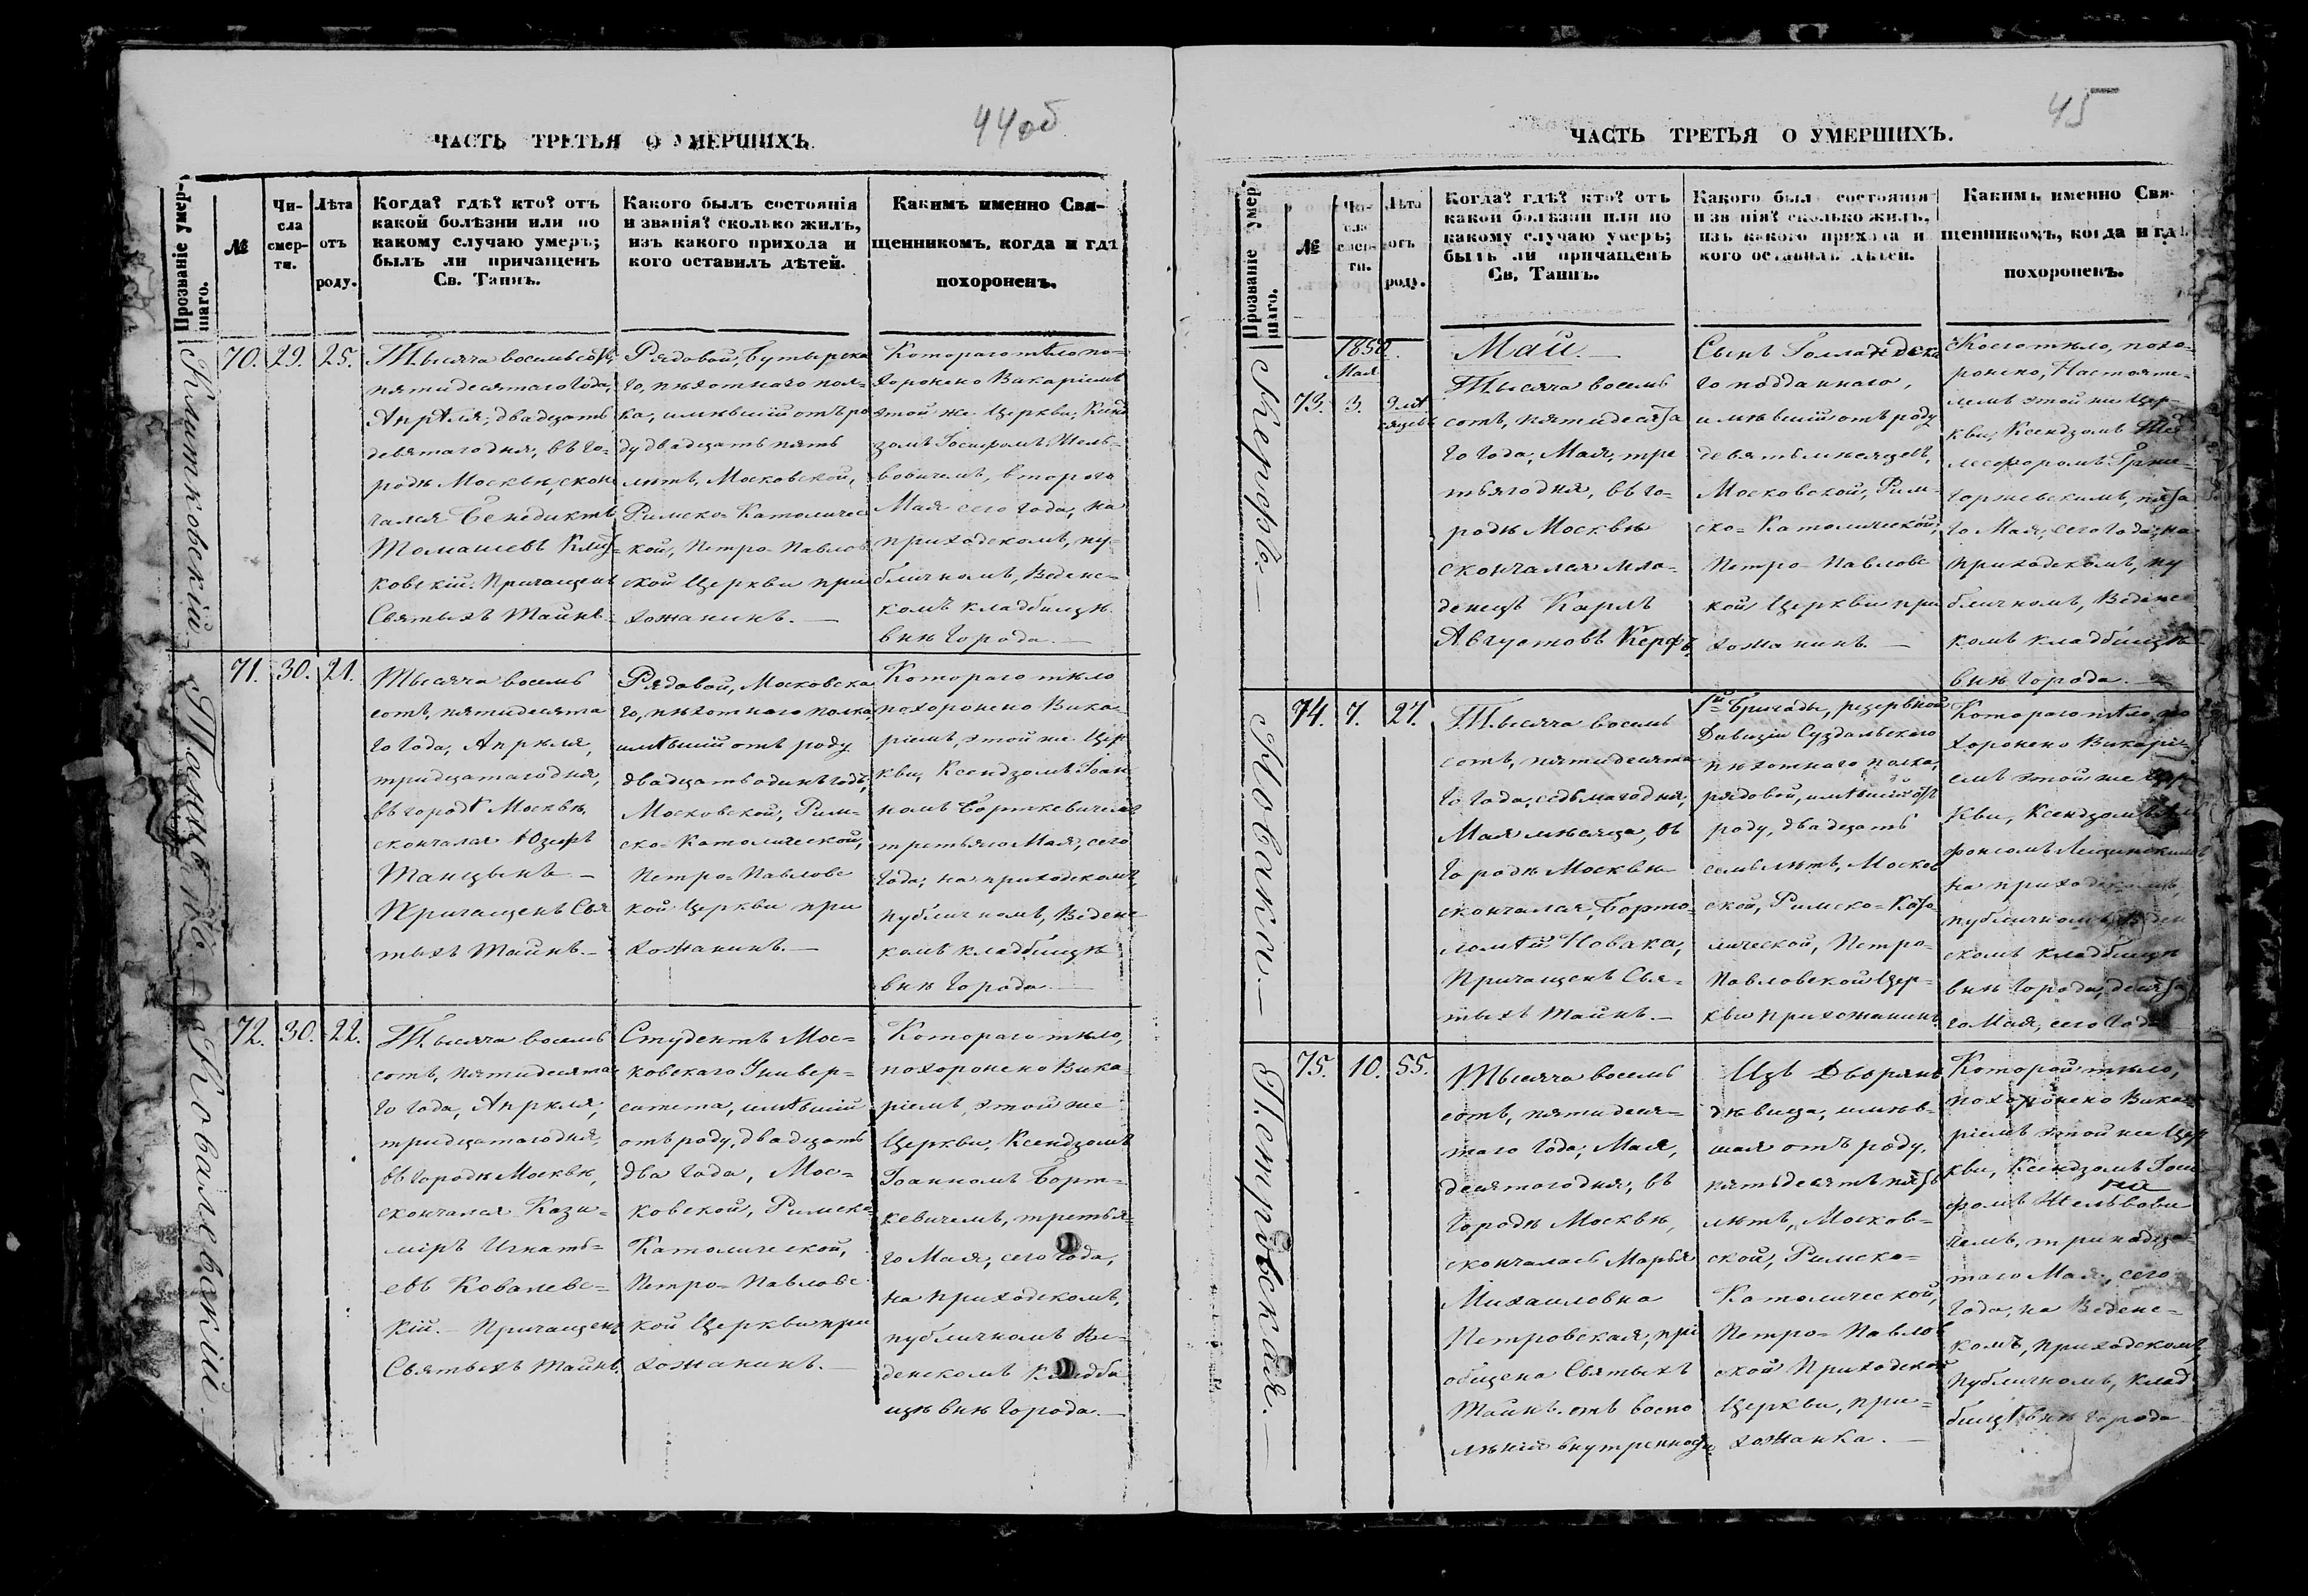 44об
ЧАСТЬ ТРЕТЬЯ О УМЕРШИХЪ.
Прозваніе умершаго.
№
Числа смерти.
Лѣта отъ роду.
Когда? гдѣ? кто? отъ
какой болѣзни или по
какому случаю умеръ;
былъ ли причащенъ
Св. Таинъ.
Какого былъ состоянія
и званія? сколько жилъ,
изъ какого прихода и
кого оставилъ дѣтей.
Какимъ именно Свя-
щенникомъ, когда и гдѣ
похороненъ.
70. 29. 25.
Тысяча восемьсотъ,
пятидесятаго Года,
Апрѣля, двадцать
девятаго дня, въ Го-
родѣ Москвѣ, скон
чался Бенедиктъ
Томашевъ
ковскій. Причащенъ
Святыхъ Таинъ.
Рядовой, Бутырска
го, пѣхотнаго пол-
ка, имѣвшій отъ ро
ду двадцать пять
лѣтъ, Московской,
Римско-Католичес
кой, Петро-Павлов
ской Церкви при
хожанинъ.
Котораго тѣло по-
хоронено Викаріемъ
этой же Церкви, Ксенд
зомъ Іосифомъ Шель-
вовичемъ, втораго
Мая сего Года, на
приходскомъ, пу-
бличномъ, Веденс-
комъ кладбищѣ
внѣ Города.
71. 30. 21.
Танцынъ.
Тысяча восемь
сотъ, пятидесята
го Года, Апрѣля,
тридцатаго дня,
въ городѣ Москвѣ,
скончался Юзефъ
Танцынъ
Причащенъ Свя
тыхъ Таинъ.
Рядовой, Московска
го, пѣхотнаго полка,
имѣвшій отъ роду
двадцать одинъ годъ,
Московской, Рим-
ско-Католической,
Петро-Павловс
кой Церкви при
хожанинъ.
Котораго тѣло
похоронено Вика-
ріемъ, этой же Цер
кви, Ксендзомъ Іоан
номъ Борткевичемъ
третьяго Мая, сего
Года, на приходскомъ,
публичномъ, Веденс
комъ кладбищѣ
внѣ Города.
72. 30. 22.
Ковалевскій.
Тысяча восемь
сотъ, пятидесята
го Года, Апрѣля,
тридцатаго дня,
въ Городѣ Москвѣ,
скончался Кази-
міръ Игнать-
евъ Ковалевс-
кій. Причащенъ
Святыхъ Таинъ.
Студентъ Мос-
ковскаго Универ-
ситета, имѣвшій
отъ роду, двадцать
два Года, Мос-
ковской, Римско-
Католической,
Петро-Павловс
кой Церкви при
хожанинъ.
Котораго тѣло,
похоронено Вика-
ріемъ, этой же
Церкви, Ксендзомъ
Іоанномъ Борт-
кевичемъ, третья-
го Мая, сего Года,
на приходскомъ,
публичномъ Ве-
денскомъ Кладби
щѣ внѣ Города.
45
ЧАСТЬ ТРЕТЬЯ О УМЕРШИХЪ.
Прозваніе умершаго.
№
Числа смерти.
Лѣта отъ роду.
Когда? гдѣ? кто? отъ
какой болѣзни или по
какому случаю умеръ;
былъ ли причащенъ
Св. Таинъ.
Какого былъ состоянія
и званія? сколько жилъ,
изъ какого прихода и
кого оставилъ дѣтей.
Какимъ именно Свя-
щенникомъ, когда и гдѣ
похороненъ.
1850. Мая
73. 3. 9 мѣсяцевъ
Керфъ.
Май.
Тысяча восемь
сотъ, пятидесята
го Года, Мая, тре
тьяго дня, въ Го-
родѣ Москвѣ
скончался мла-
денецъ Карлъ
Августовъ Керфъ.
Сынъ Голландска
го подданнаго,
имѣвшій отъ роду
девять мѣсяцевъ,
Московской, Рим-
ско-Католической,
Петро-Павловс
кой Церкви при
хожанинъ.
Коего тѣло, похо-
ронено, Настояте-
лемъ этой же Цер-
кви, Ксендзомъ
го Мая, сего Года, на
приходскомъ, пу
бличномъ, Веденс
комъ кладбищѣ
внѣ Города.
74. 7. 27.
Новака.
Тысяча восемь
сотъ, пятидесята
го Года, седьмаго дня,
Мая мѣсяца, въ
Городѣ Москвѣ
скончался, Барто-
ломѣй Новака,
Причащенъ Свя-
тыхъ Таинъ.
1й Бригады, резервной
Дивизіи Суздальскаго
пѣхотнаго полка,
рядовой, имѣвшій отъ
роду, двадцать
семь лѣтъ, Москов
ской, Римско-Като
лической, Петро-
Павловской Цер-
кви прихожанинъ.
Котораго тѣло, по
хоронено Викарі-
емъ этой же Цер
кви, Ксендзомъ
на приходскомъ,
публичномъ, Веден
скомъ кладбищѣ
внѣ Города, десята
го Мая, сего Года
75. 10. 55.
Петровская.
Тысяча восемь
сотъ, пятидеся-
таго Года, Мая,
десятаго дня, въ
Городѣ Москвѣ,
скончалась Марья
Михаиловна
Петровская, прі
общена Святыхъ
Таинъ. отъ воспа
ленія внутренности.
Изъ Дворянъ
дѣвица, имѣв-
шая отъ роду,
пятьдесятъ пять
лѣтъ, Москов-
ской, Римско-
Католической,
Петро-Павлов
ской Приходской
Церкви, при-
хожанка.
Которой тѣло,
похоронено Вика-
ріемъ этой же Цер
кви, Ксендзомъ Іоси
фомъ Шельвови
чемъ, тринадца
таго Мая, сего
Года, на Веденс-
комъ, приходскомъ,
Публичномъ, клад
бищѣ внѣ Города